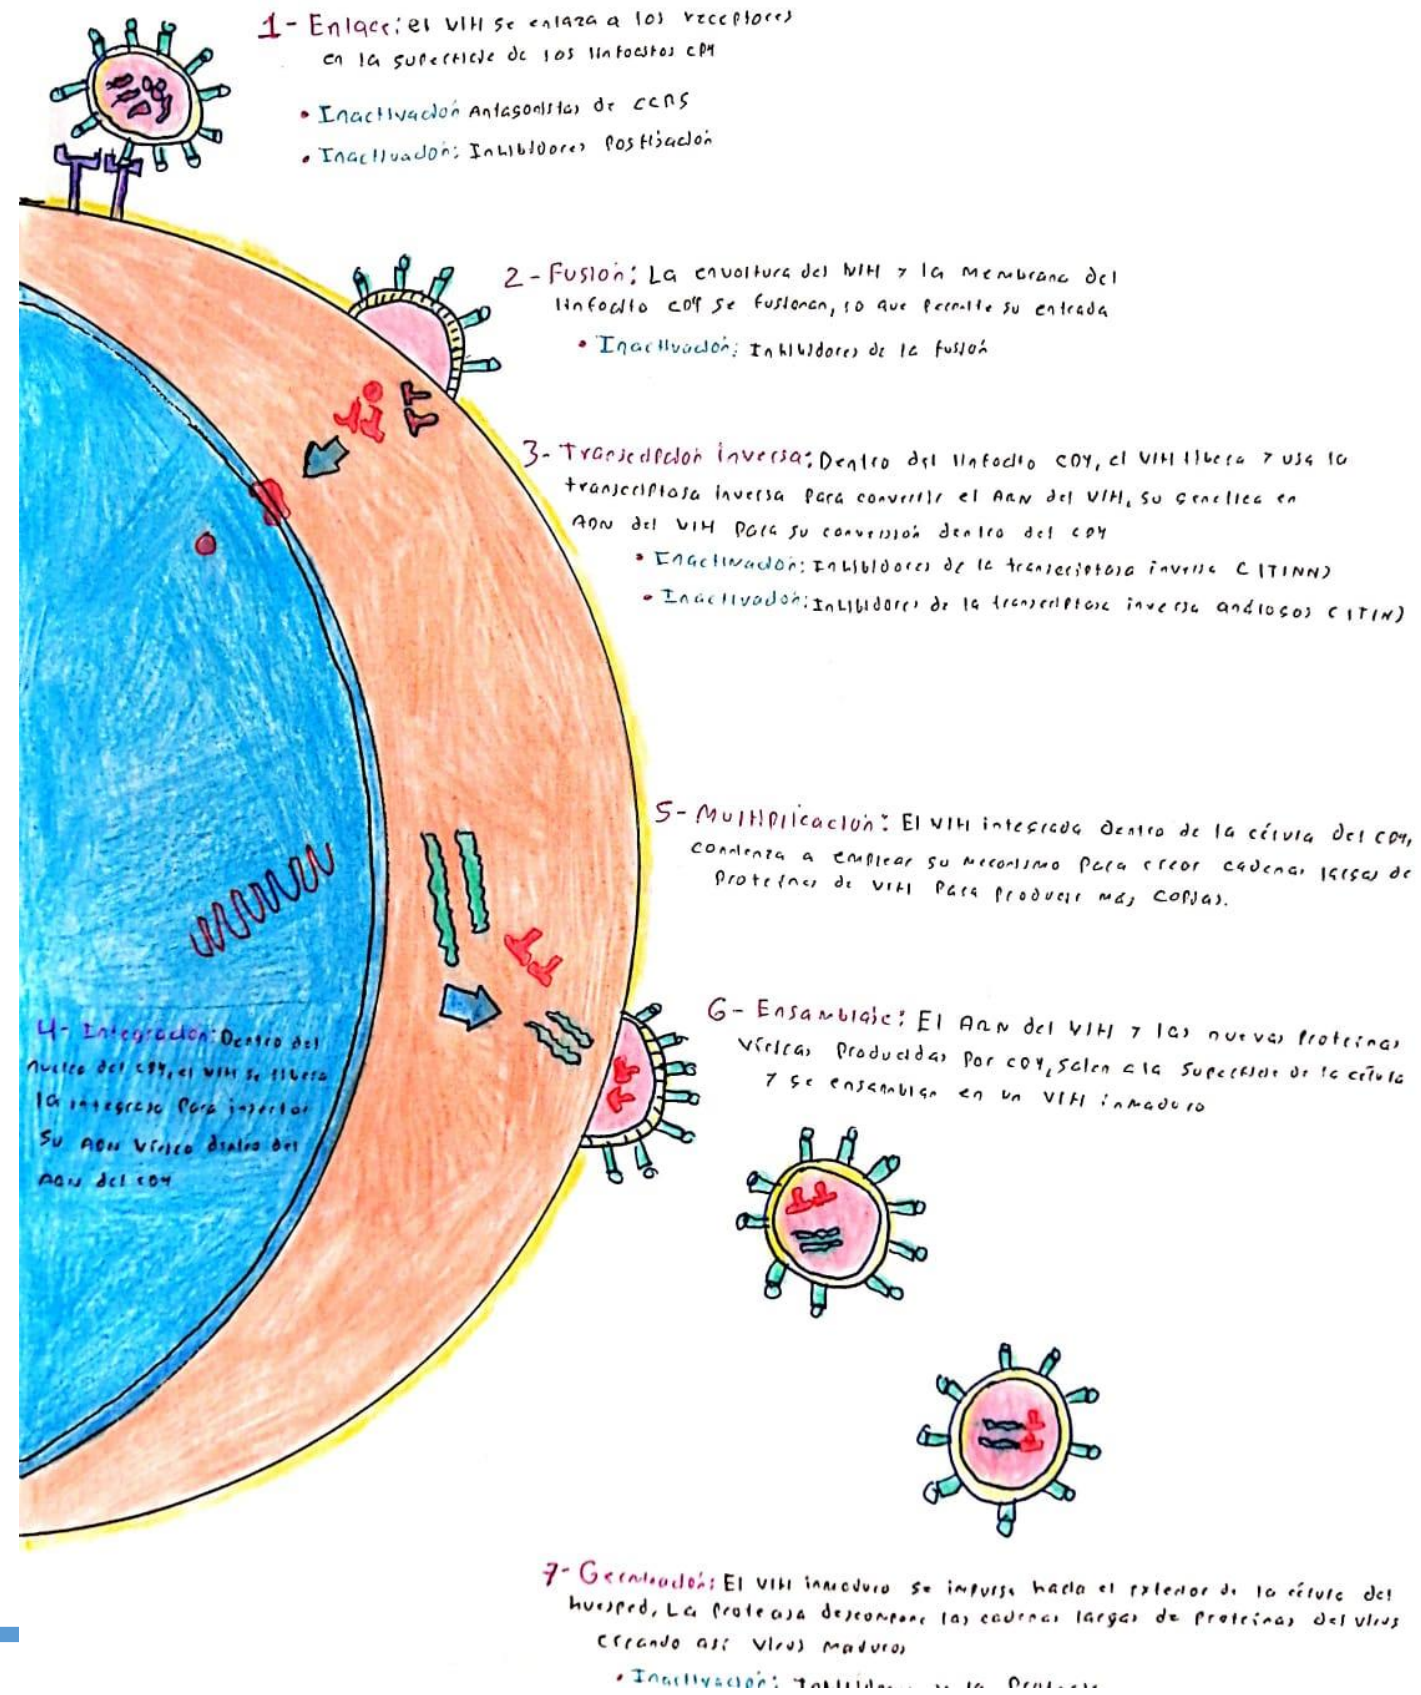 1- Enlace: el VIH se enlaza a los receptores
en la superficie de los linfocitos CD4
• Inactivación Antagonistas de CCR5
• Inactivación: Inhibidores Posfijación
2- Fusión: La envoltura del VIH y la membrana del
linfocito CD4 se fusionan, lo que permite su entrada
• Inactivación: Inhibidores de la fusión
3- Transcripción inversa: Dentro del linfocito CD4, el VIH libera y usa la
transcriptasa inversa para convertir el ARN del VIH, su genética en
ADN del VIH para su conversión dentro del CD4
• Inactivación: Inhibidores de la transcriptasa inversa (ITINN)
• Inactivación: Inhibidores de la transcriptasa inversa análogos (ITIN)
5- Multiplicación: El VIH integrado dentro de la célula del CD4,
comienza a emplear su mecanismo para crear cadenas largas de
proteínas de VIH para producir más copias.
6- Ensamblaje: El ARN del VIH y las nuevas proteínas
víricas producidas por CD4, salen a la superficie de la célula
y se ensamblan en un VIH inmaduro
4- Integración: Dentro del
núcleo del CD4, el VIH se libera
la integrasa para insertar
su ADN vírico dentro del
ADN del CD4
7- Germinación: El VIH inmaduro se impulsa hacia el exterior de la célula del
huésped, La proteasa descompone las cadenas largas de proteínas del virus
creando así virus maduros
• Inactivación: Inhibidores de la Proteasa